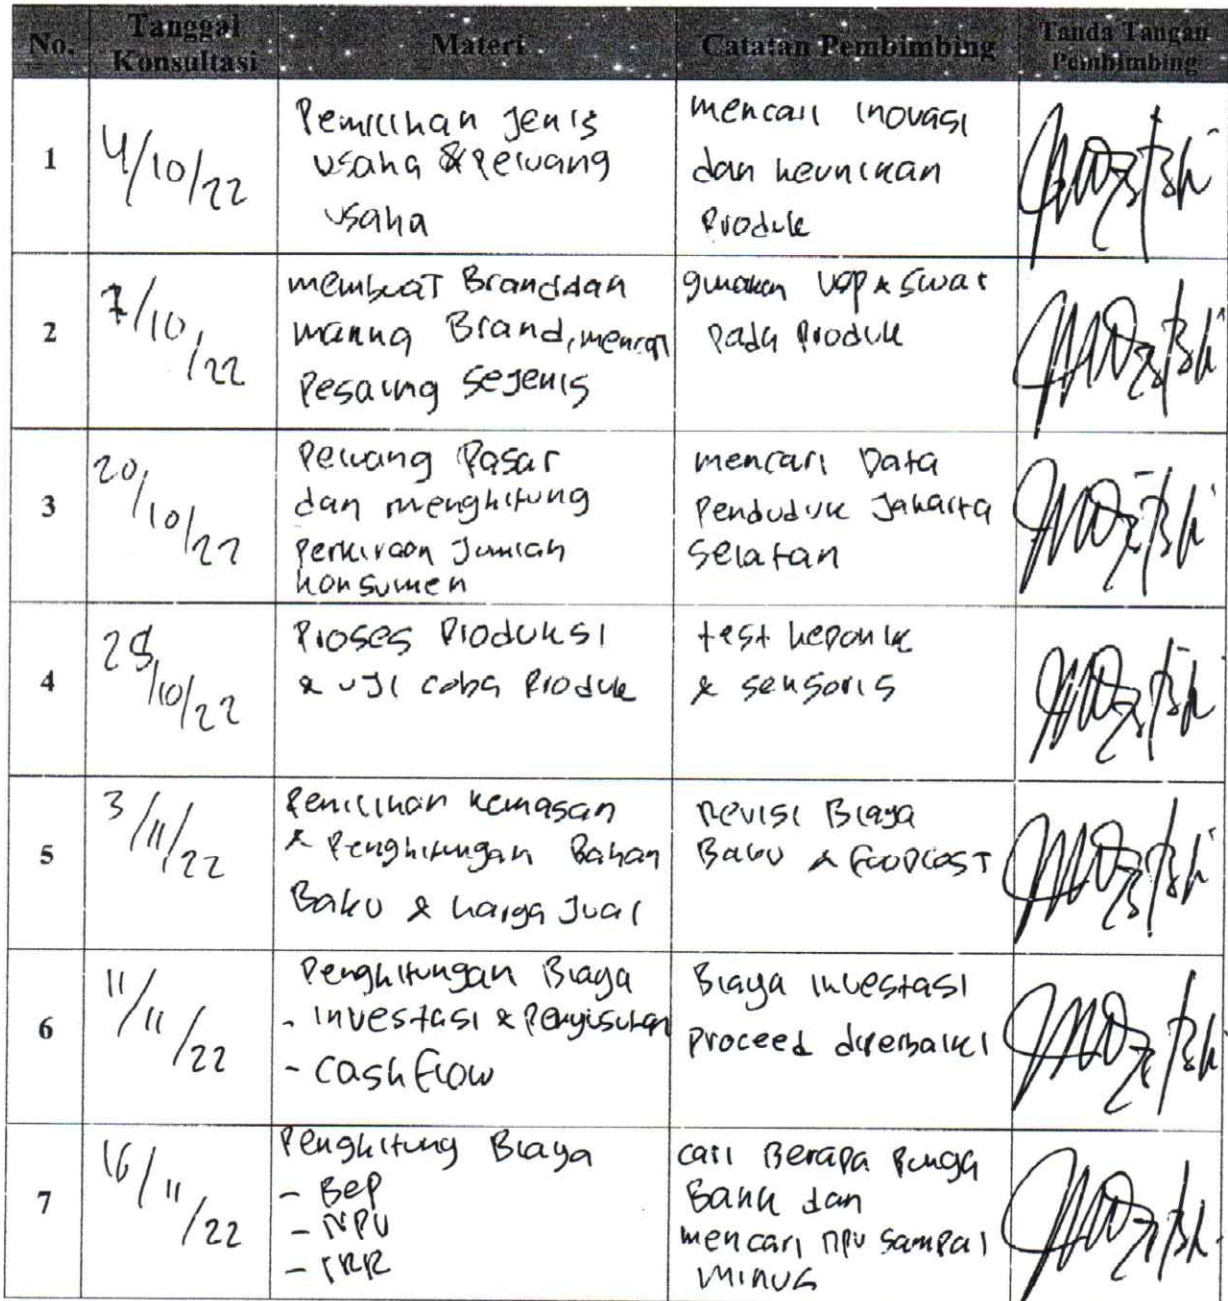 No.
Tanggal
Konsultasi
Materi
Catatan Pembimbing
Tanda Tangan
Pembimbing
1
4/10/22
Pemilihan Jenis
usaha & Peluang
usaha
mencari inovasi
dan keunikan
Produk
2
7/10/22
membuat Brand dan
makna Brand, mencari
Pesaing Sejenis
gunakan USP & Swot
Pada Produk
3
20/10/22
Peluang Pasar
dan menghitung
Perkiraan Jumlah
konsumen
mencari Data
Penduduk Jakarta
Selatan
4
28/10/22
Proses Produksi
& uji coba Produk
test hedonik
& sensoris
5
3/11/22
Pemilihan Kemasan
& Penghitungan Bahan
Baku & harga Jual
Revisi Biaya
Baku & FoodCost
6
11/11/22
Penghitungan Biaya
- investasi & Penyusutan
- Cash Flow
Biaya investasi
proceed diperbaiki
7
16/11/22
Penghitung Biaya
- BeP
- NPV
- IRR
cari Berapa Bunga
Bank dan
mencari npv sampai
minus